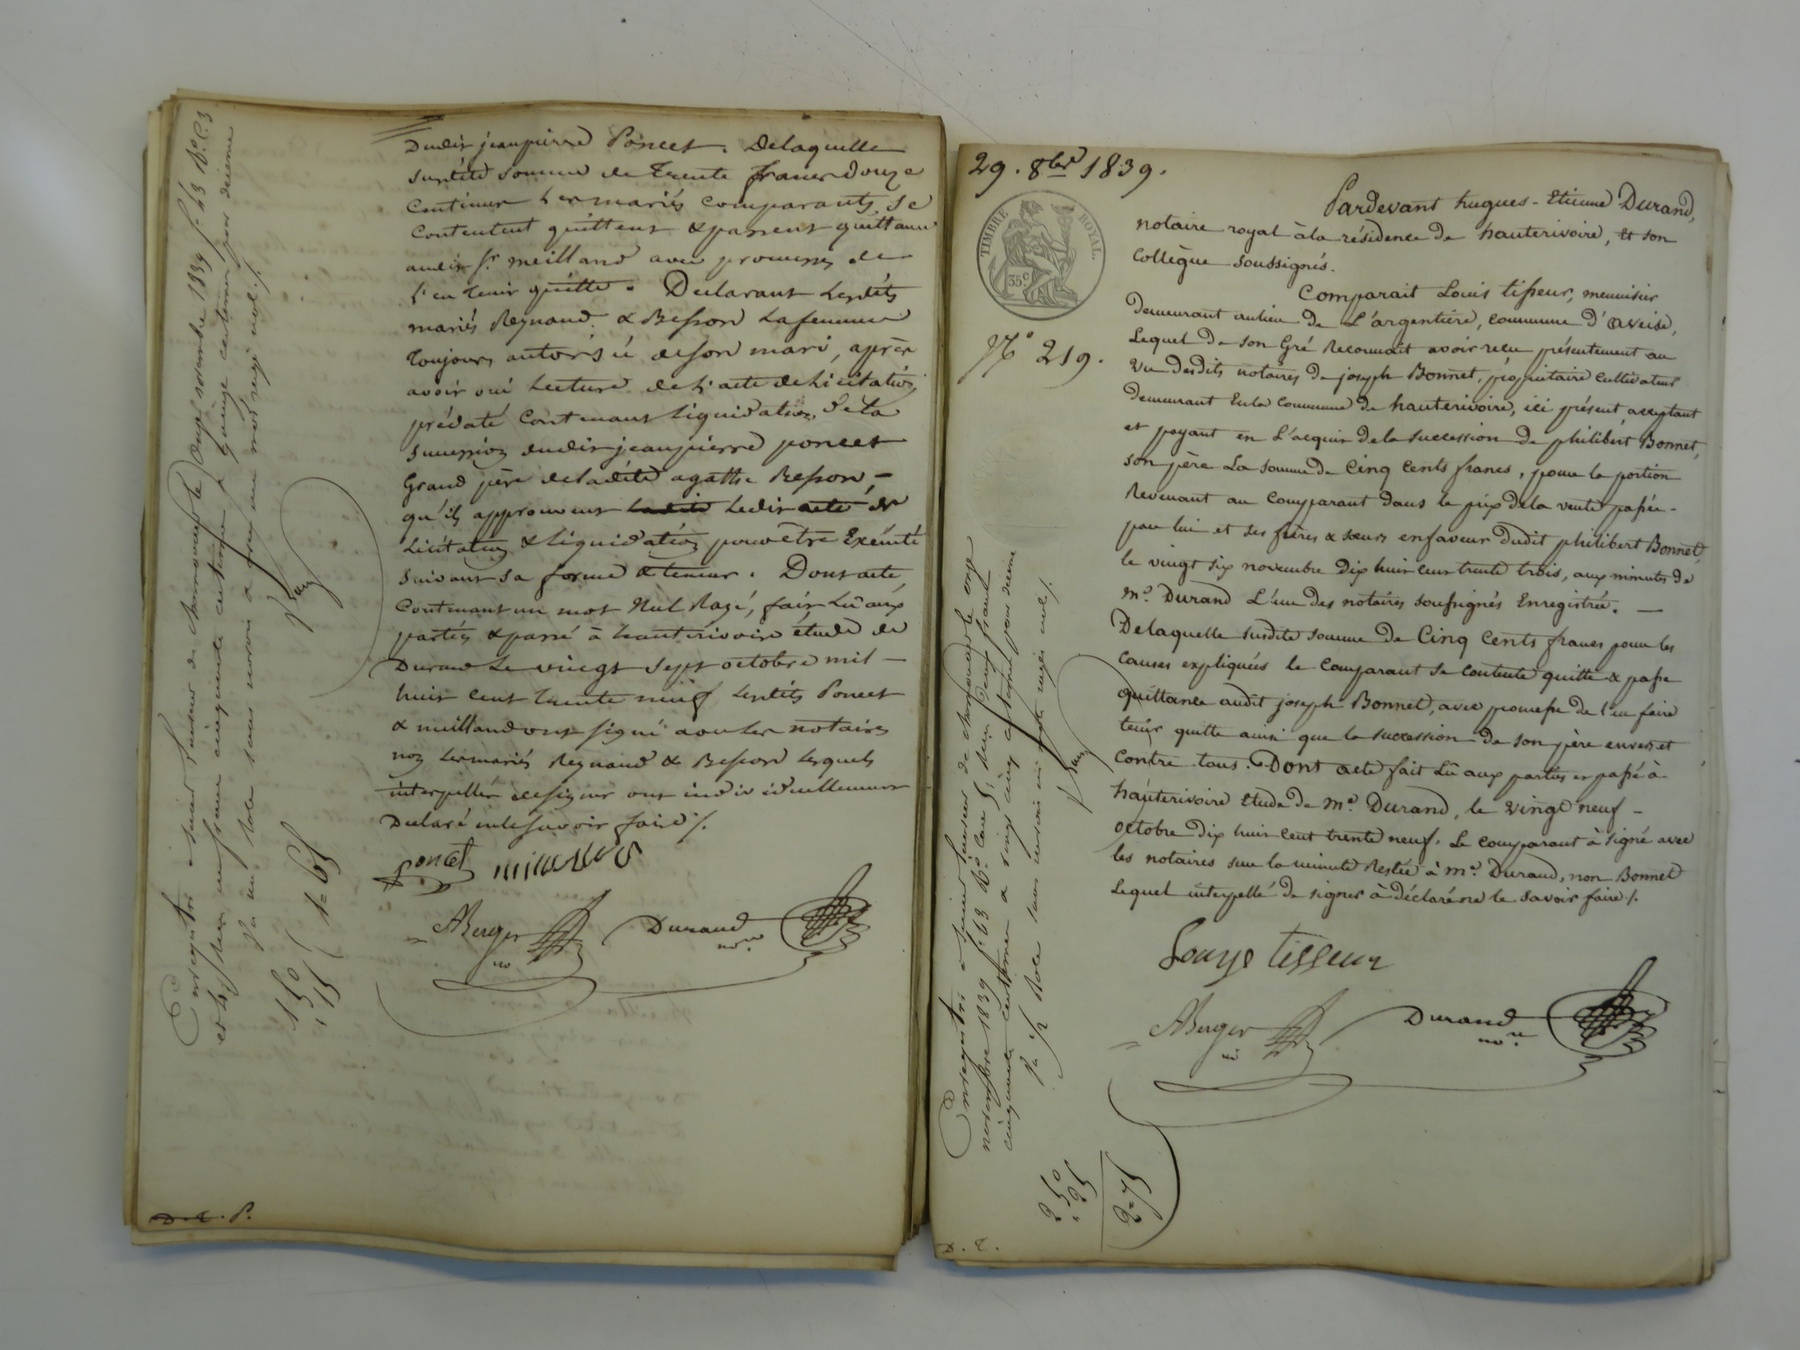 Dudit jeanpierre Poncet. Delaquelle
susdite somme de Trente francs Douze
Centimes Les mariés comparants se
Contentent quittent & passent quittance
audit Sr. meilland avec promesse de
l'en tenir quitte. Declarant Lesdits
mariés Reynaud & Besson Lafemme
toujours autorisée deson mari, après
avoir oui Lecture del'acte delicitation
prédaté Contenant liquidation de la
succession dudit jeanpierre poncet
Grand père deladite agathe Besson -
qu'ils approuvent Ledit acte de
Licitation & liquidation pour être Exécuté
suivant sa forme & teneur. Dont acte,
Contenant un mot Nul Rayé, fait Lû aux
parties & passé à hauterivoire étude de
Durand Le vingt sept octobre mil -
huit cent trente neuf Lesdits Poncet
& meilland ont signé avec Les notaires
non Les mariés Reynaud & Besson Lesquels
interpellés designer ont individuellement
Declaré nele savoir faire ./.
Poncet meilland
ABerger no Durand nore
Enregistré à St
onze novembre 1839 fo 63 Ro. C. 3
et 4, reçu un franc cinquante centimes & quinze centimes pour dixieme
Va un Role sans renvoi à un mot rayé nul ./.
1 50
" 15
1 = 65
D. T. P.
29. 8bre 1839.
TIMBRE ROYAL
35 c
No 219.
Pardevant hugues-Etienne Durand,
notaire royal àla résidence de hauterivoire, Et son
Collègue soussignés.
Comparait Louis tisseur, menuisier
Demeurant aulieu De L'argentière, commune d'aveise,
Lequel De son Gré Reconnait avoir reçu présentement au
vu desdits notaires De joseph Bonnet, propriétaire cultivateur
Demeurant Enla Commune de hauterivoire, ici présent acceptant
et payant en L'acquit dela succession De philibert Bonnet,
son père La somme de Cinq Cents francs, pour la portion
Revenant au Comparant dans le prix dela vente passée -
par lui et ses frères & sœurs enfaveur Dudit philibert Bonnet,
le vingt six novembre Dix huit cent trente trois, aux minutes de
Me. Durand L'un des notaires soussignés Enregistrée. -
Delaquelle susdite somme De Cinq Cents francs pour les
causes expliquées le Comparant se contente quitte & passe
quittance audit joseph Bonnet, avec promesse de l'en faire
tenir quitte ainsi que la succession De son père envers et
contre tous. Dont acte fait Lû aux parties et passé à -
hauterivoire Etude de Me. Durand, le vingt neuf -
octobre Dix huit cent trente neuf. Le comparant à signé avec
les notaires sur la minute Restée à Me. Durand, non Bonnet
Lequel interpellé de signer à déclaré ne le savoir faire ./.
Louys tisseur
ABerger no Durand nore.
Enregistré à
novembre 1839 fo 63 Ro. Case 5, reçu deux francs
cinquante centimes & vingt cinq centimes pour dixieme
Va 1/2 Role sans renvoi ni mots rayés nuls ./.
2 50
" 25
2 = 75
D. T.